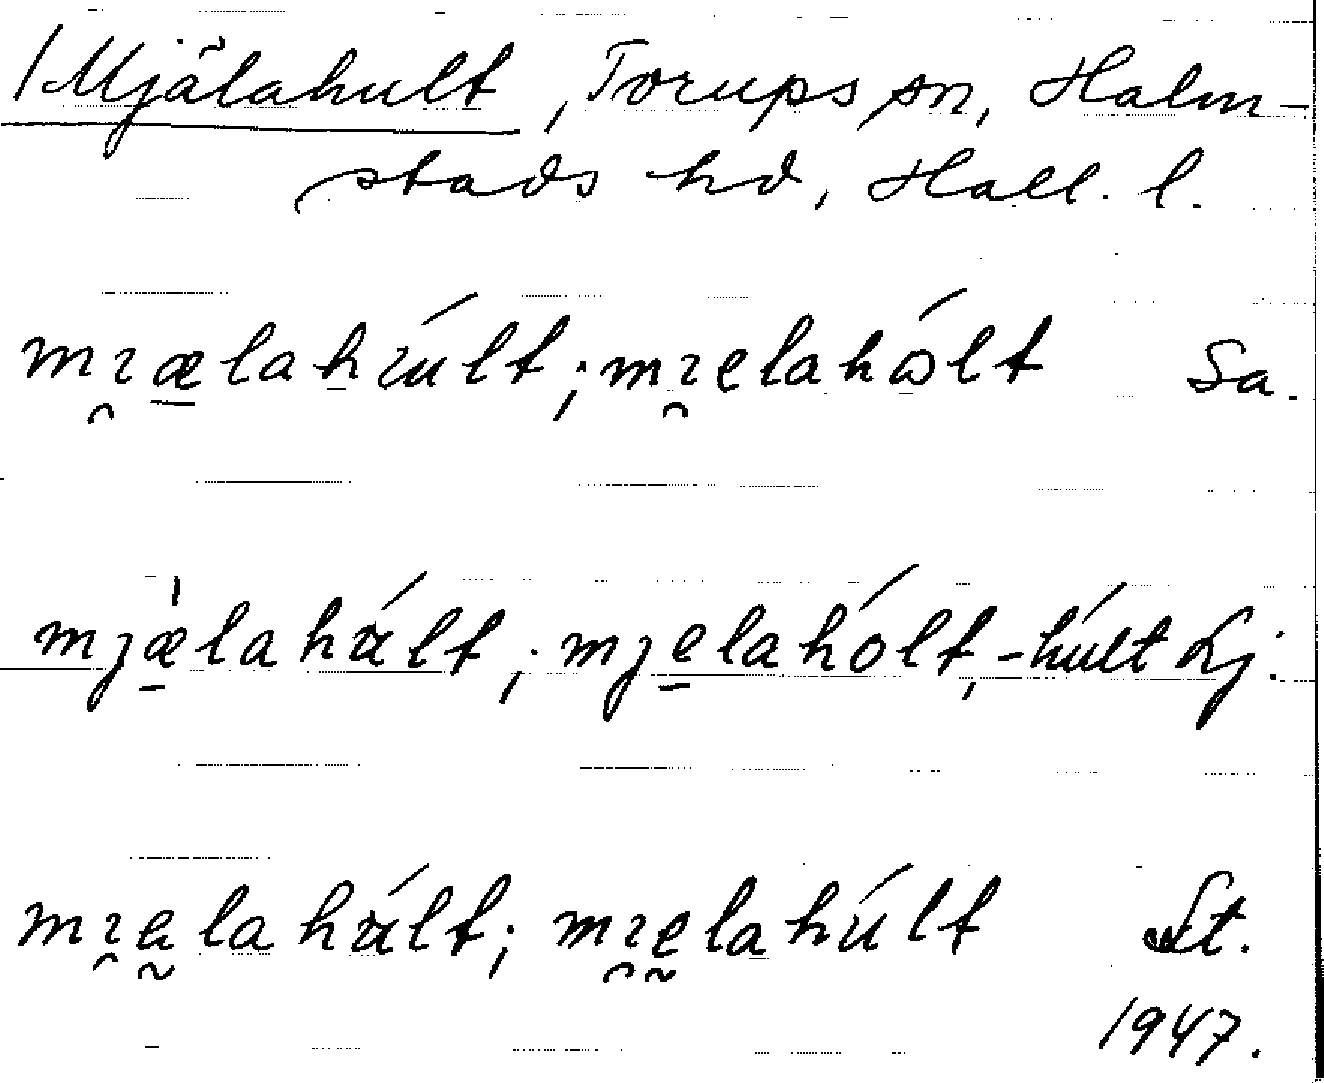 /Mjälahult, Torups sn, Halm-
stads hd, Hall. l.
mɪ̯æ̱lahúlt; mɪ̯elahólt Sa.
mjæ̱̀lahúlt; mje̱lahólt, -húlt Lj.
mɪ̯ḛlahúlt; mɪ̯ḛlahúlt St.
1947.